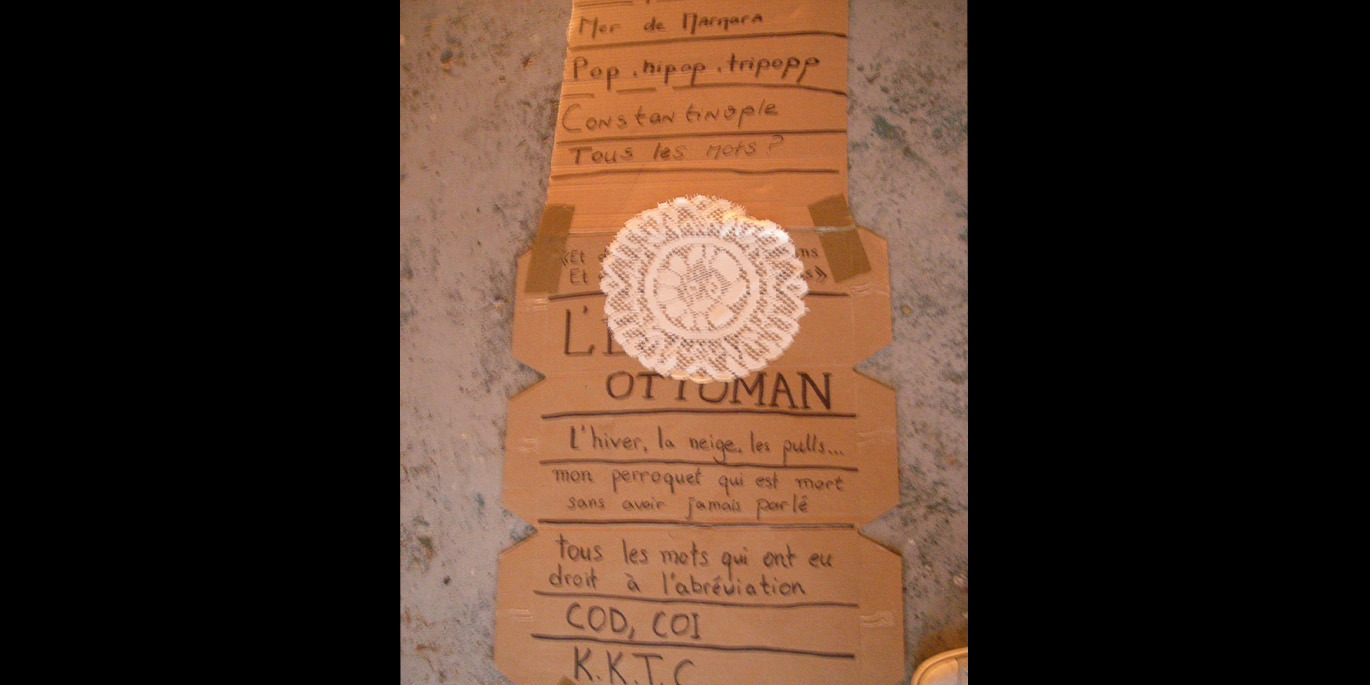 Mer de Marmara
Pop . hipop . tripopp
Constantinople
Tous les mots ?
«Et
Et
L'
OTTOMAN
L'hiver, la neige, les pulls...
mon perroquet qui est mort
sans avoir jamais parlé
tous les mots qui ont eu
droit à l'abréviation
COD, COI
K.K.T.C